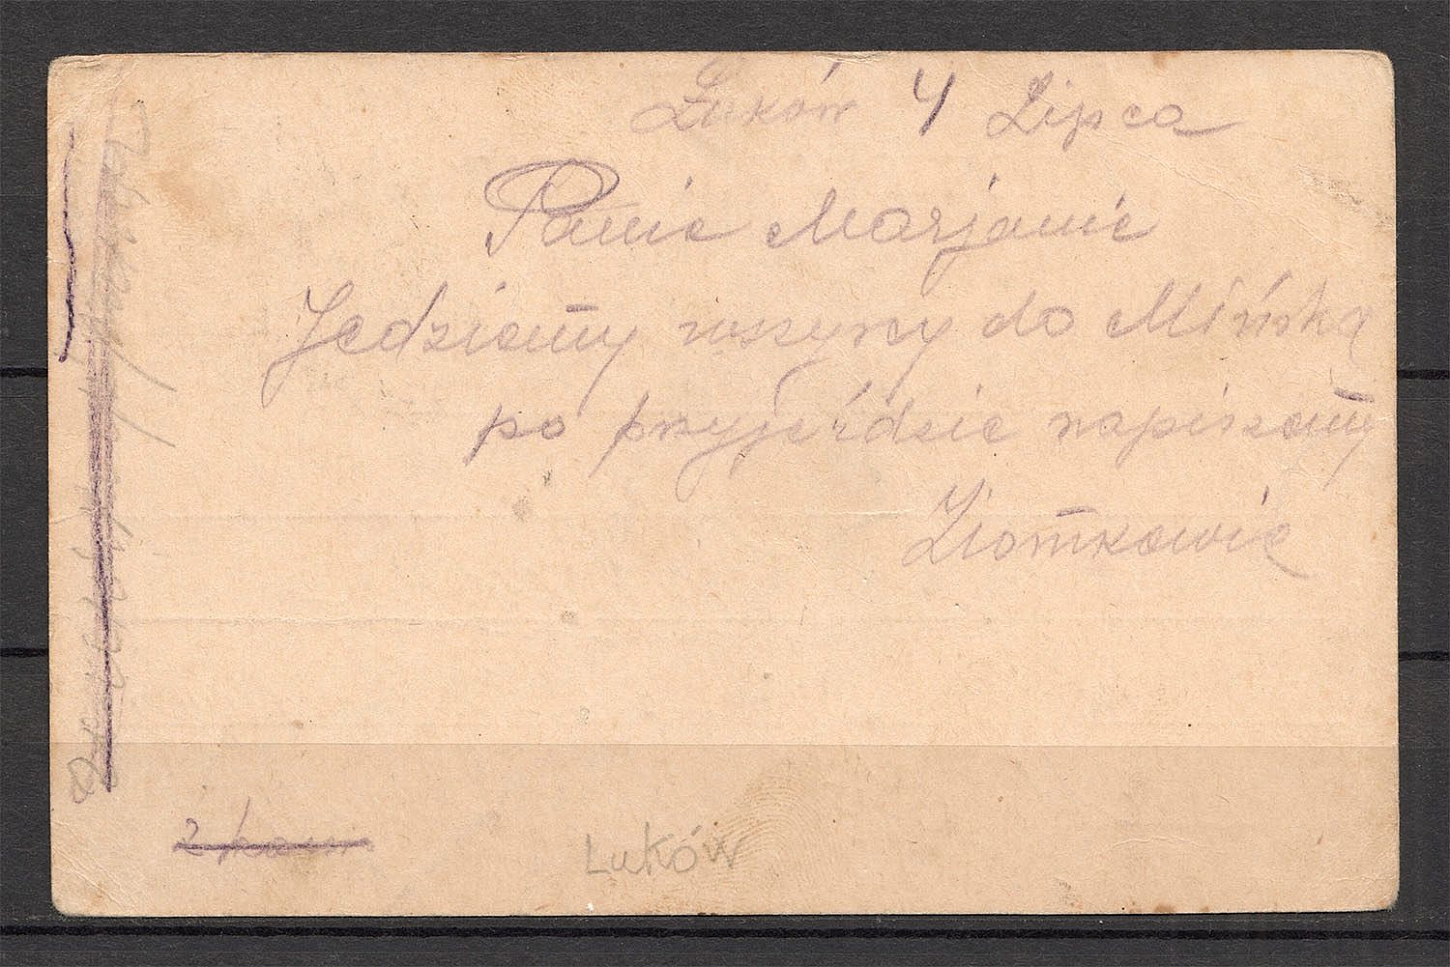 Łuków 4 Lipca
Panie Marjanie
Jedziemy wszyscy do Mińska
po przyjeździe napiszemy
Ziomkowie
Łuków